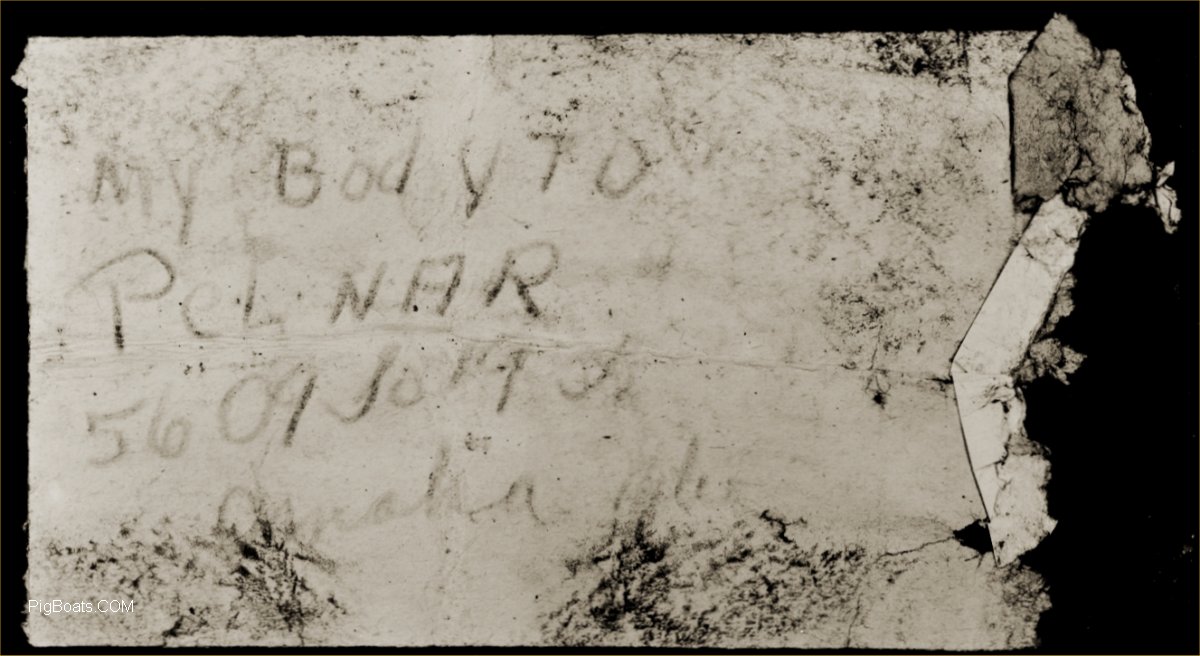 My Body TO
PCLNAR
5609 So 19 St
Omaha
PigBoats.COM